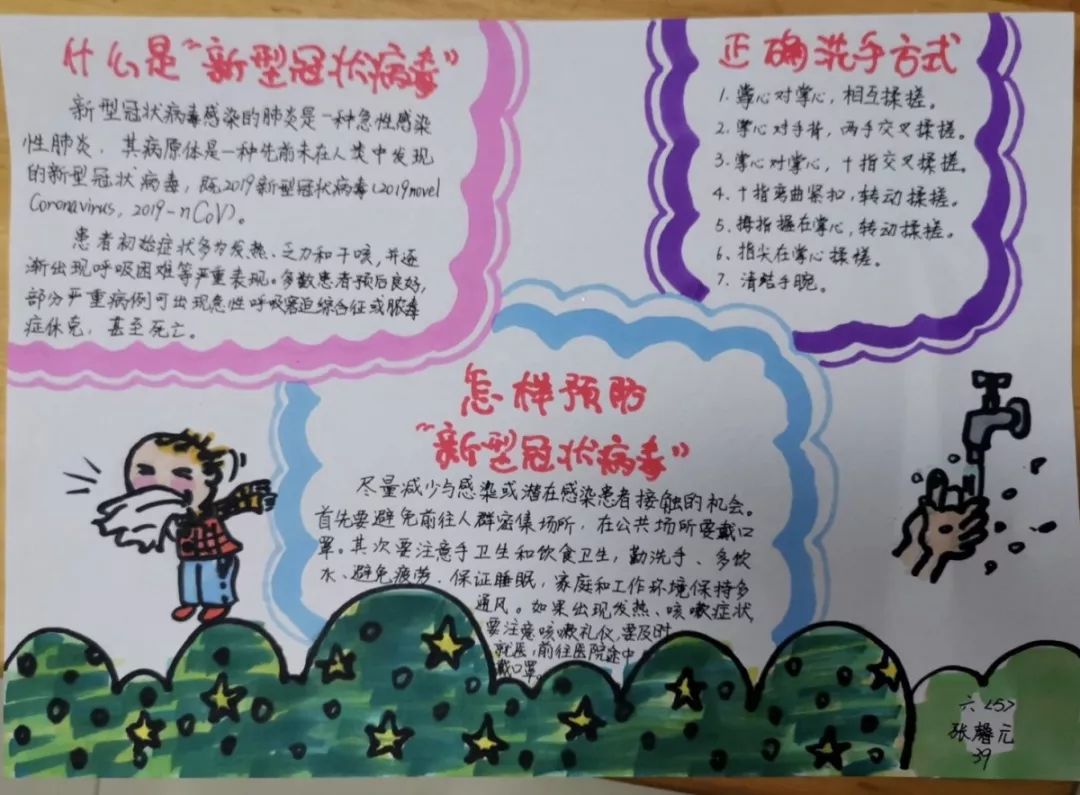 什么是“新型冠状病毒”
新型冠状病毒感染的肺炎是一种急性感染
性肺炎，其病原体是一种先前未在人类中发现
的新型冠状病毒，既2019新型冠状病毒(2019novel
Coronavirus，2019-nCoV)。
患者初始症状多为发热、乏力和干咳，并逐
渐出现呼吸困难等严重表现。多数患者预后良好，
部分严重病例可出现急性呼吸窘迫综合征或脓毒
症休克，甚至死亡。
正确洗手方式
1. 掌心对掌心，相互揉搓。
2. 掌心对手背，两手交叉揉搓。
3. 掌心对掌心，十指交叉揉搓。
4. 十指弯曲紧扣，转动揉搓。
5. 拇指握在掌心，转动揉搓。
6. 指尖在掌心揉搓。
7. 清洁手腕。
怎样预防
“新型冠状病毒”
尽量减少与感染或潜在感染患者接触的机会。
首先要避免前往人群密集场所，在公共场所要戴口
罩。其次要注意手卫生和饮食卫生，勤洗手、多饮
水、避免疲劳、保证睡眠，家庭和工作环境保持多
通风。如果出现发热、咳嗽症状，
要注意咳嗽礼仪，要及时
就医，前往医院途中
戴口罩。
六<5>
张馨元
39